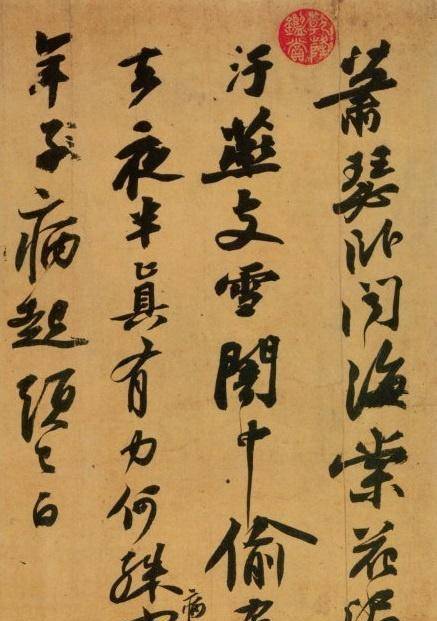 乾隆鑑賞
蕭瑟臥聞海棠花泥
汙燕支雪闇中偷
去夜半真有力何殊
病
年子病起頭已白